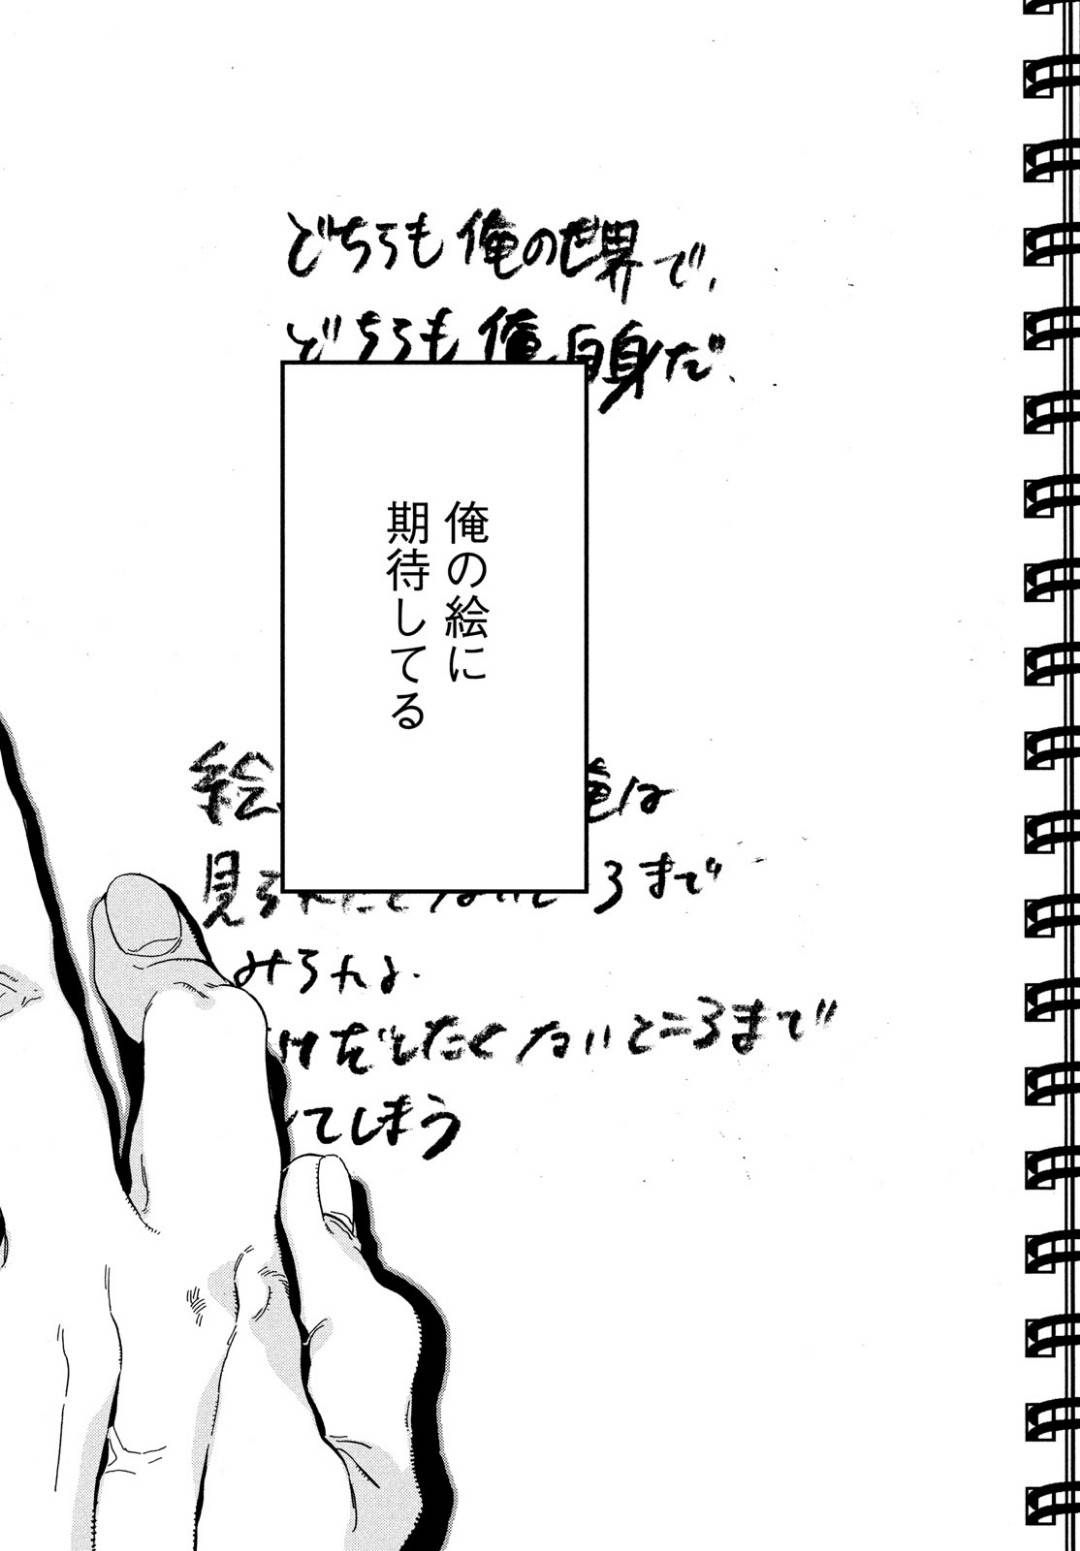 どちらも俺の世界で、
どちらも俺自身だ、
俺の絵に
期待してる
絵 俺は
見られたくないところまで
みられる
けだしたくないところまで
てしまう